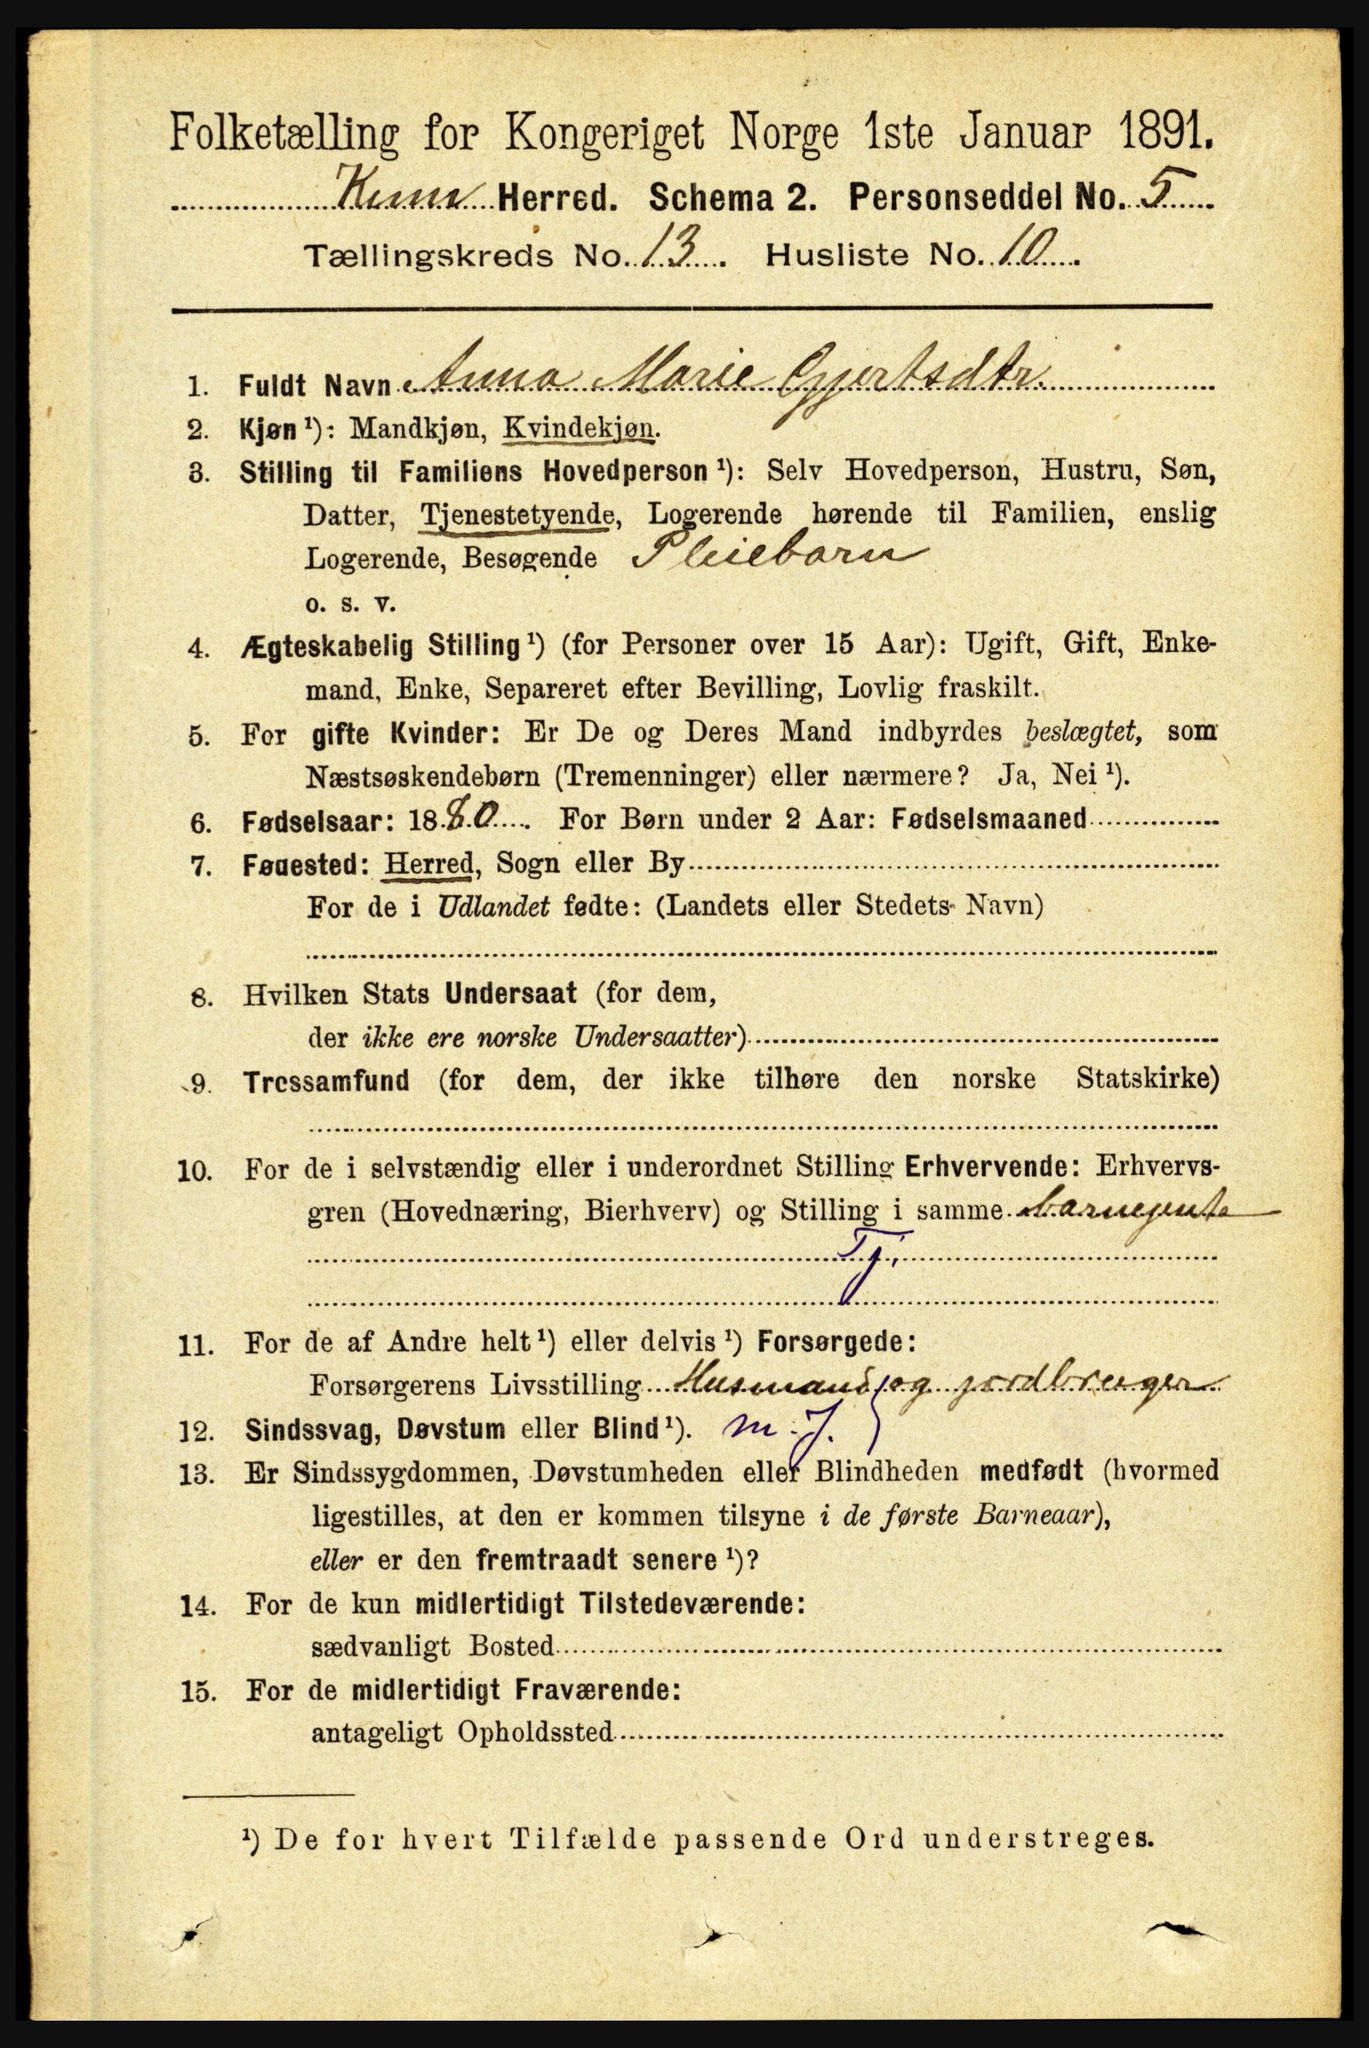 Folketælling for Kongeriget Norge 1ste Januar 1891.
Kinn Herred. Schema 2. Personseddel No. 5
Tællingskreds No. 13. Husliste No. 10.
1. Fuldt Navn Anna Marie Gjertsdtr.
2. Kjøn ¹): Mandkjøn, Kvindekjøn.
3. Stilling til Familiens Hovedperson ¹): Selv Hovedperson, Hustru, Søn,
Datter, Tjenestetyende, Logerende hørende til Familien, enslig
Logerende, Besøgende Pleiebarn
o. s. v.
4. Ægteskabelig Stilling ¹) (for Personer over 15 Aar): Ugift, Gift, Enke-
mand, Enke, Separeret efter Bevilling, Lovlig fraskilt.
5. For gifte Kvinder: Er De og Deres Mand indbyrdes beslægtet, som
Næstsøskendebørn (Tremenninger) eller nærmere? Ja, Nei ¹).
6. Fødselsaar: 1880. For Børn under 2 Aar: Fødselsmaaned
7. Fødested: Herred, Sogn eller By
For de i Udlandet fødte: (Landets eller Stedets Navn)
8. Hvilken Stats Undersaat (for dem,
der ikke ere norske Undersaatter)
9. Trossamfund (for dem, der ikke tilhøre den norske Statskirke)
10. For de i selvstændig eller i underordnet Stilling Erhvervende: Erhvervs-
gren (Hovednæring, Bierhverv) og Stilling i samme barnejente
Tj.
11. For de af Andre helt ¹) eller delvis ¹) Forsørgede:
Forsørgerens Livsstilling Husmand og jordbruger
12. Sindssvag, Døvstum eller Blind ¹). m. J.
13. Er Sindssygdommen, Døvstumheden eller Blindheden medfødt (hvormed
ligestilles, at den er kommen tilsyne i de første Barneaar),
eller er den fremtraadt senere ¹)?
14. For de kun midlertidigt Tilstedeværende:
sædvanligt Bosted
15. For de midlertidigt Fraværende:
antageligt Opholdssted
¹) De for hvert Tilfælde passende Ord understreges.